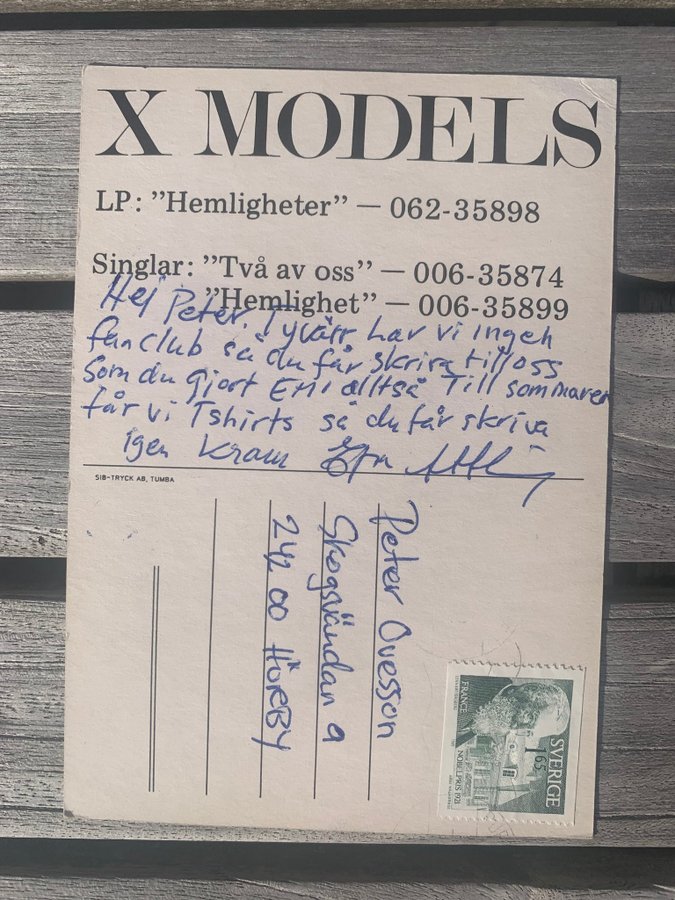 X MODELS
LP: ”Hemligheter” — 062-35898
Singlar: ”Två av oss” — 006-35874
”Hemlighet” — 006-35899
Hej Peter. Tyvärr har vi ingen
fanclub så du får skriva till oss
som du gjort EMI alltså Till sommaren
får vi Tshirts så du får skriva
igen Kram Efva
SIB-TRYCK AB, TUMBA
Peter Ovesson
Skogsvändan 9
242 00 HÖRBY
SVERIGE
165
FRANCE
NOBELPRIS 1921